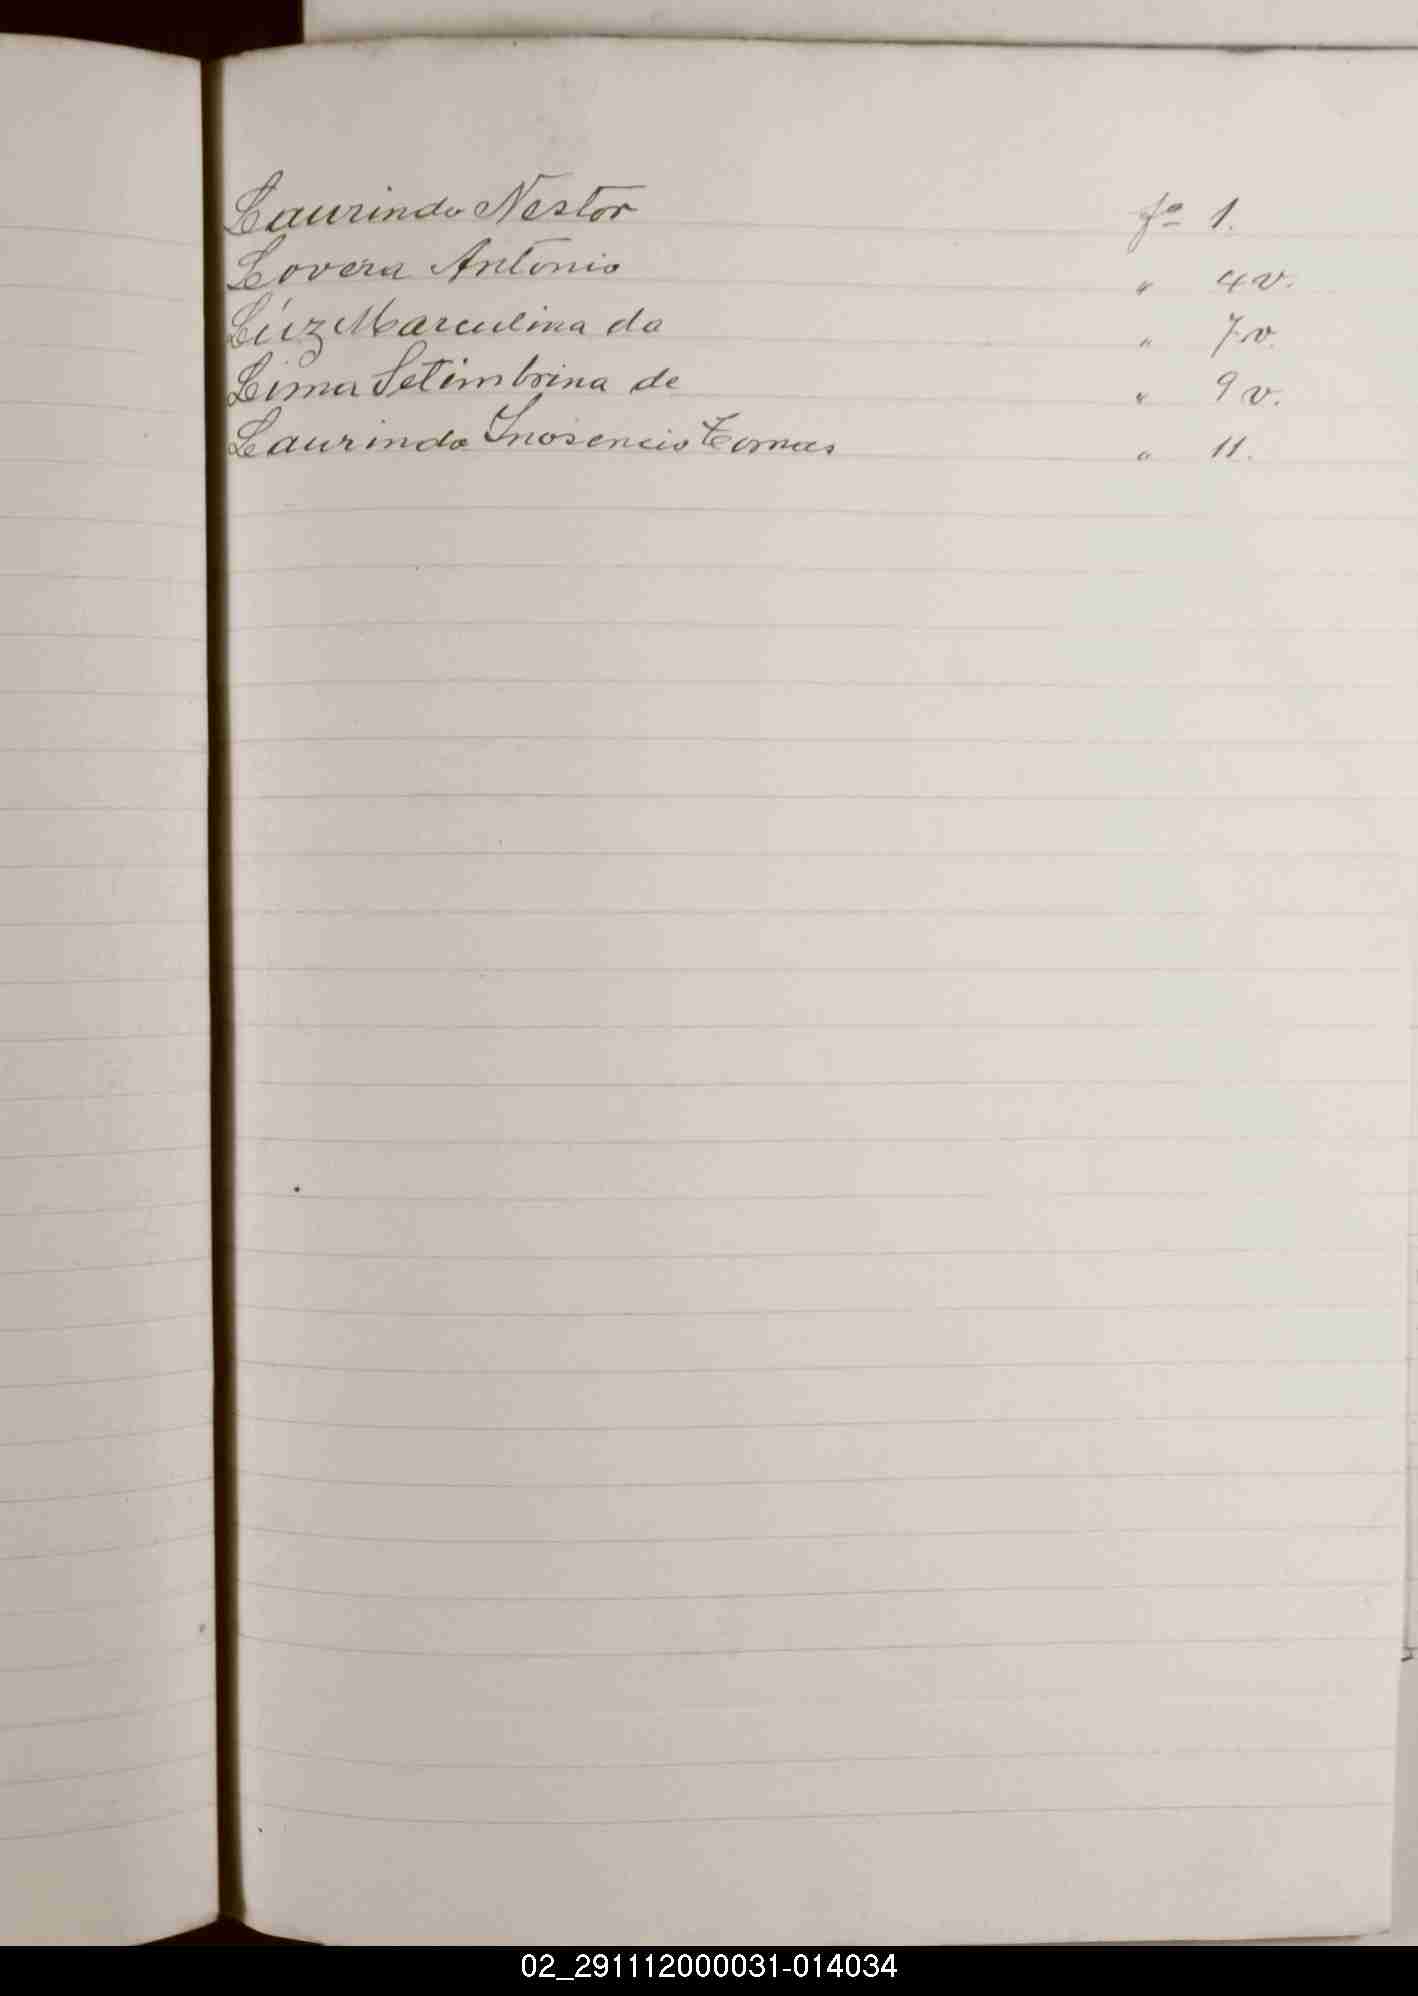 Laurindo Nestor fº 1.
Lovera Antonio " 4 v.
Lúiz Marculina da " 7 v.
Lima Setimbrina de " 9 v.
Laurindo Inosencio Tomas " 11.
02_291112000031-014034